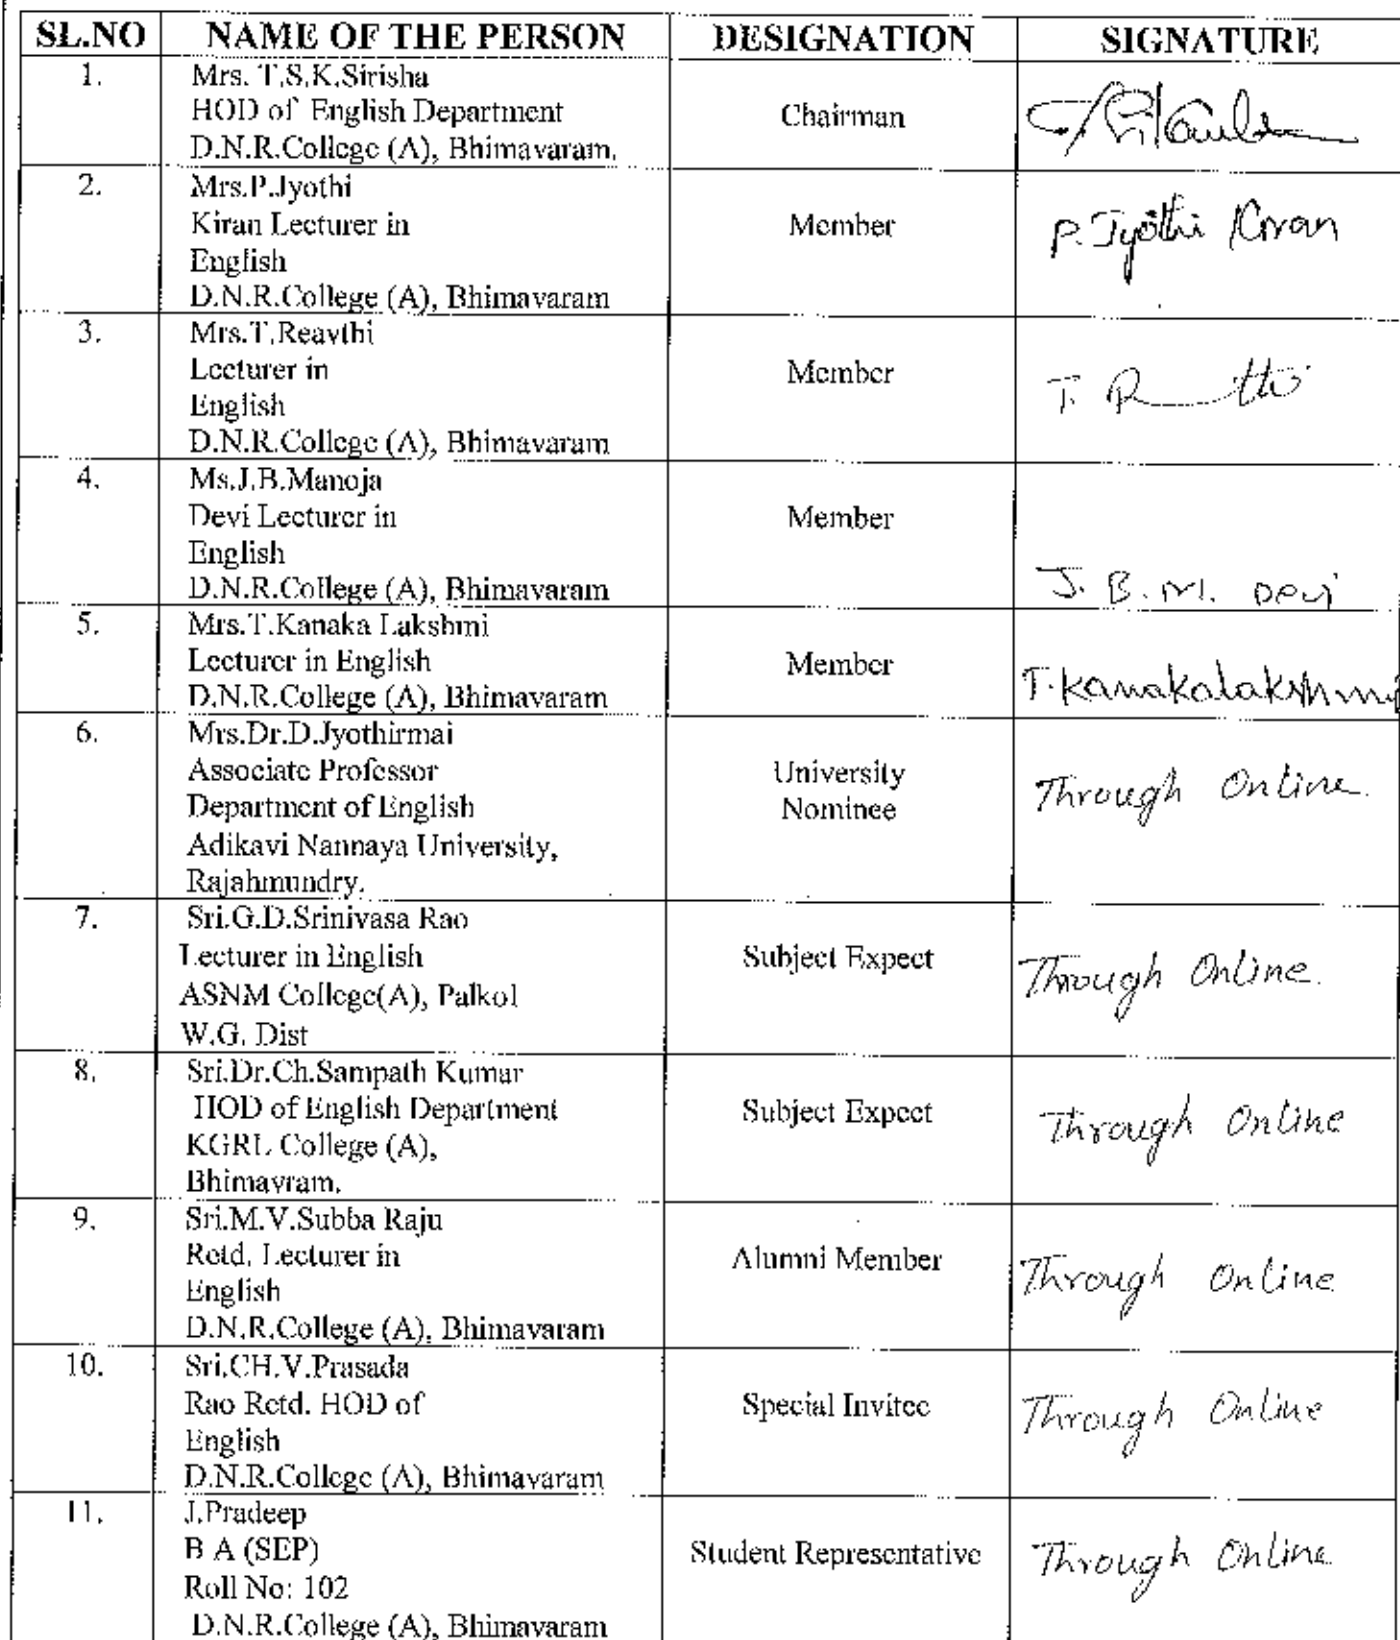 SL.NO NAME OF THE PERSON DESIGNATION SIGNATURE
1. Mrs. T.S.K.Sirisha
HOD of English Department
D.N.R.College (A), Bhimavaram.
Chairman
2. Mrs.P.Jyothi
Kiran Lecturer in
English
D.N.R.College (A), Bhimavaram
Member
P. Jyothi Kiran
3. Mrs.T.Reavthi
Lecturer in
English
D.N.R.College (A), Bhimavaram
Member
T. R
4. Ms.J.B.Manoja
Devi Lecturer in
English
D.N.R.College (A), Bhimavaram
Member
J. B. M. Devi
5. Mrs.T.Kanaka Lakshmi
Lecturer in English
D.N.R.College (A), Bhimavaram
Member
T. Kanakalakshmi
6. Mrs.Dr.D.Jyothirmai
Associate Professor
Department of English
Adikavi Nannaya University,
Rajahmundry.
University
Nominee
Through Online.
7. Sri.G.D.Srinivasa Rao
Lecturer in English
ASNM College(A), Palkol
W.G. Dist
Subject Expect
Through Online.
8. Sri.Dr.Ch.Sampath Kumar
HOD of English Department
KGRL College (A),
Bhimavram.
Subject Expect
Through Online
9. Sri.M.V.Subba Raju
Retd. Lecturer in
English
D.N.R.College (A), Bhimavaram
Alumni Member
Through Online
10. Sri.CH.V.Prasada
Rao Retd. HOD of
English
D.N.R.College (A), Bhimavaram
Special Invitee
Through Online
11. J.Pradeep
B A (SEP)
Roll No: 102
D.N.R.College (A), Bhimavaram
Student Representative
Through Online